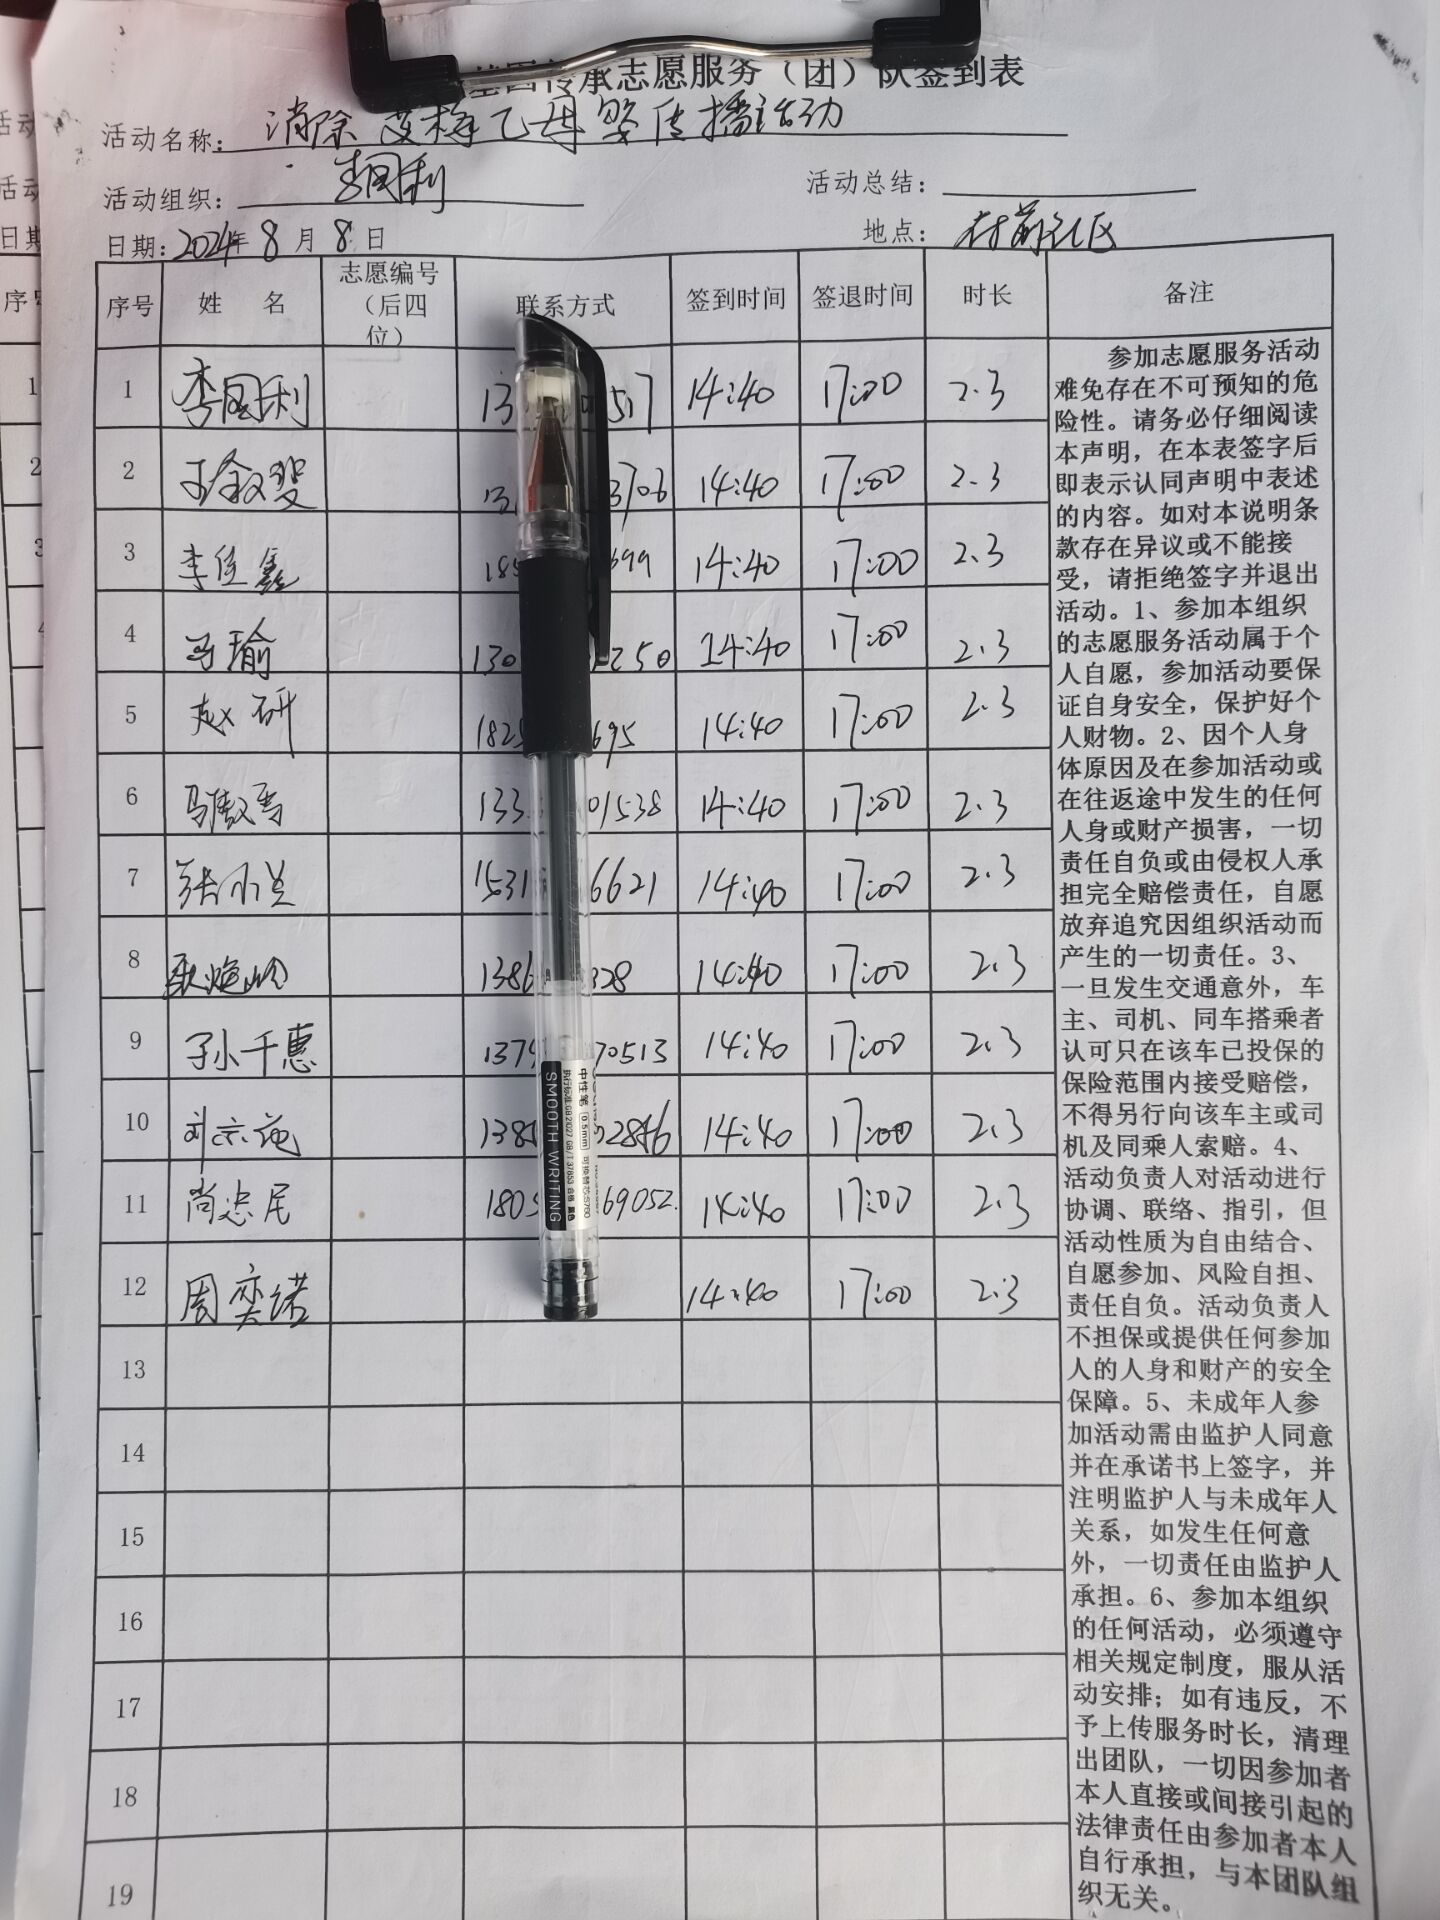 传承志愿服务（团）队签到表
活动名称：消除艾梅乙母婴传播活动
活动组织：李国利 活动总结：
日期：2024年8月8日 地点：村前社区
序号 姓 名 志愿编号（后四位） 联系方式 签到时间 签退时间 时长 备注
1 李国利 13 517 14:40 17:00 2.3
2 3706 14:40 17:00 2.3
3 李佳鑫 185 699 14:40 17:00 2.3
4 马瑜 130 250 14:40 17:00 2.3
5 赵研 1825 695 14:40 17:00 2.3
6 133 01538 14:40 17:00 2.3
7 张小兰 1531 6621 14:40 17:00 2.3
8 1386 328 14:40 17:00 2.3
9 孙千惠 1379 70513 14:40 17:00 2.3
10 138 14:40 17:00 2.3
11 尚忠尾 1805 69052. 14:40 17:00 2.3
12 周奕诺 14:40 17:00 2.3
13
14
15
16
17
18
19
参加志愿服务活动
难免存在不可预知的危
险性。请务必仔细阅读
本声明，在本表签字后
即表示认同声明中表述
的内容。如对本说明条
款存在异议或不能接
受，请拒绝签字并退出
活动。1、参加本组织
的志愿服务活动属于个
人自愿，参加活动要保
证自身安全，保护好个
人财物。2、因个人身
体原因及在参加活动或
在往返途中发生的任何
人身或财产损害，一切
责任自负或由侵权人承
担完全赔偿责任，自愿
放弃追究因组织活动而
产生的一切责任。3、
一旦发生交通意外，车
主、司机、同车搭乘者
认可只在该车已投保的
保险范围内接受赔偿，
不得另行向该车主或司
机及同乘人索赔。4、
活动负责人对活动进行
协调、联络、指引，但
活动性质为自由结合、
自愿参加、风险自担、
责任自负。活动负责人
不担保或提供任何参加
人的人身和财产的安全
保障。5、未成年人参
加活动需由监护人同意
并在承诺书上签字，并
注明监护人与未成年人
关系，如发生任何意
外，一切责任由监护人
承担。6、参加本组织
的任何活动，必须遵守
相关规定制度，服从活
动安排；如有违反，不
予上传服务时长，清理
出团队，一切因参加者
本人直接或间接引起的
法律责任由参加者本人
自行承担，与本团队组
织无关。
中性笔 0.5mm
SMOOTH WRITING